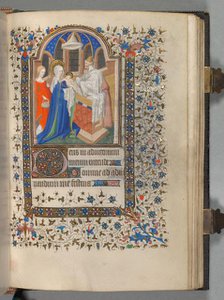 Deus in adiutorium
meum intende
Domine ad adiu
vandum me festina